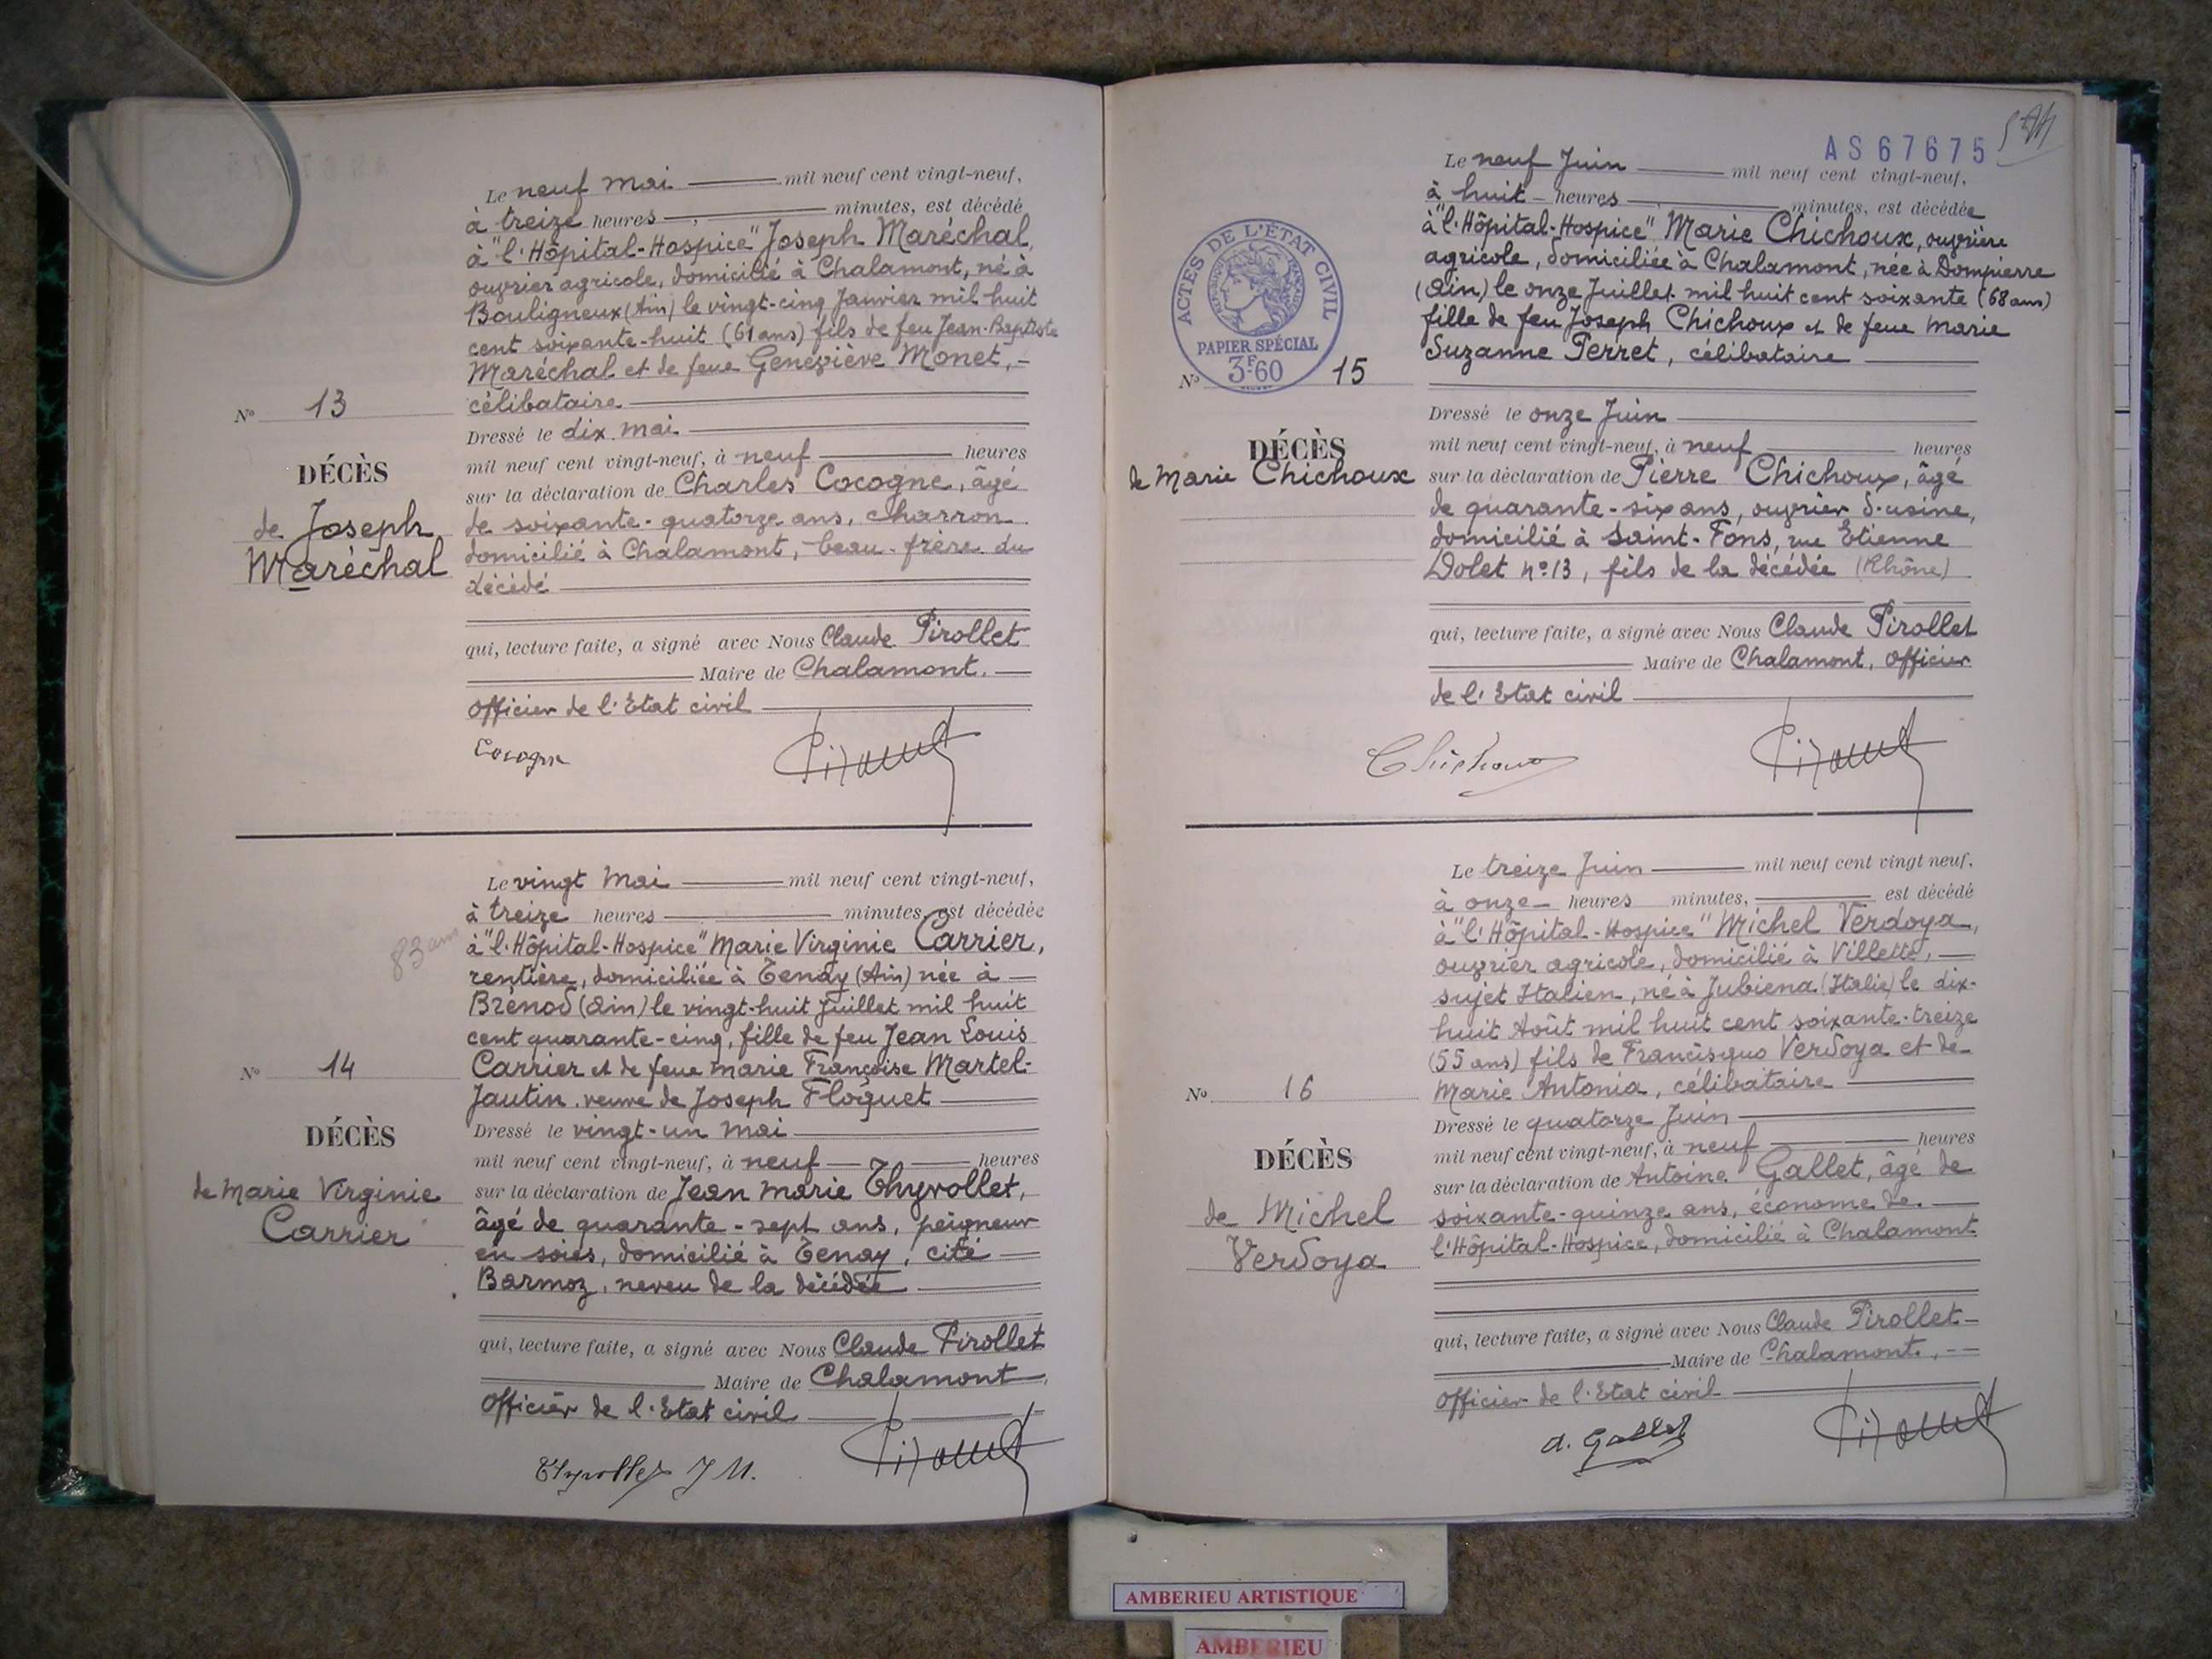 Le neuf mai mil neuf cent vingt-neuf,
à treize heures minutes, est décédé
à "l'Hôpital-Hospice" Joseph Maréchal,
ouvrier agricole, domicilié à Chalamont, né à
Bouligneux (Ain) le vingt-cinq Janvier mil huit
cent soixante-huit (61 ans) fils de feu Jean-Baptiste
Maréchal et de feue Geneviève Monet, -
célibataire
Dressé le dix mai
mil neuf cent vingt-neuf, à neuf heures
sur la déclaration de Charles Cocogne, âgé
de soixante-quatorze ans, charron
domicilié à Chalamont, beau-frère du
décédé
qui, lecture faite, a signé avec Nous Claude Pirollet
Maire de Chalamont.
Officier de l'Etat civil
Cocogne
N° 13
DÉCÈS
de Joseph
Maréchal
Le vingt Mai mil neuf cent vingt-neuf,
à treize heures minutes, est décédée
83 ans
à "l'Hôpital-Hospice" Marie Virginie Carrier,
rentière, domiciliée à Tenay (Ain) née à
Brénod (Ain) le vingt-huit Juillet mil huit
cent quarante-cinq, fille de feu Jean Louis
Carrier et de feue Marie Françoise Martel-
Jautin, veuve de Joseph Floquet
Dressé le vingt-un Mai
mil neuf cent vingt-neuf, à neuf heures
sur la déclaration de Jean Marie Thyvollet,
âgé de quarante-sept ans, peigneur
en soies, domicilié à Tenay, cité
Barmoz, neveu de la décédée
qui, lecture faite, a signé avec Nous Claude Pirollet
Maire de Chalamont,
Officier de l'Etat civil
Thyvollet J M.
N° 14
DÉCÈS
de Marie Virginie
Carrier
AS67675
Le neuf Juin mil neuf cent vingt-neuf,
à huit heures minutes, est décédée
à "l'Hôpital-Hospice" Marie Chichoux, ouvrière
agricole, domiciliée à Chalamont, née à Dompierre
(Ain) le onze Juillet mil huit cent soixante (68 ans)
fille de feu Joseph Chichoux et de feue Marie
Suzanne Perret, célibataire
Dressé le onze Juin
mil neuf cent vingt-neuf, à neuf heures
sur la déclaration de Pierre Chichoux, âgé
de quarante-six ans, ouvrier d'usine,
domicilié à Saint-Fons, rue Etienne
Dolet n° 13, fils de la décédée (Rhône)
qui, lecture faite, a signé avec Nous Claude Pirollet
Maire de Chalamont, Officier
de l'Etat civil
Chichoux
ACTES DE L'ÉTAT CIVIL
RÉPUBLIQUE FRANÇAISE
PAPIER SPÉCIAL
3F60
N° 15
DÉCÈS
de Marie Chichoux
Le treize Juin mil neuf cent vingt neuf,
à onze heures minutes, est décédé
à "l'Hôpital-Hospice" Michel Verdoya,
ouvrier agricole, domicilié à Villette,
sujet Italien, né à Jubiena (Italie) le dix-
huit Août mil huit cent soixante-treize
(55 ans) fils de Francisquo Verdoya et de
Marie Antonia, célibataire
Dressé le quatorze Juin
mil neuf cent vingt-neuf, à neuf heures
sur la déclaration de Antoine Gallet, âgé de
soixante-quinze ans, économe de
l'Hôpital-Hospice, domicilié à Chalamont
qui, lecture faite, a signé avec Nous Claude Pirollet
Maire de Chalamont,
Officier de l'Etat civil
A. Gallet
N° 16
DÉCÈS
de Michel
Verdoya
AMBERIEU ARTISTIQUE
AMBERIEU